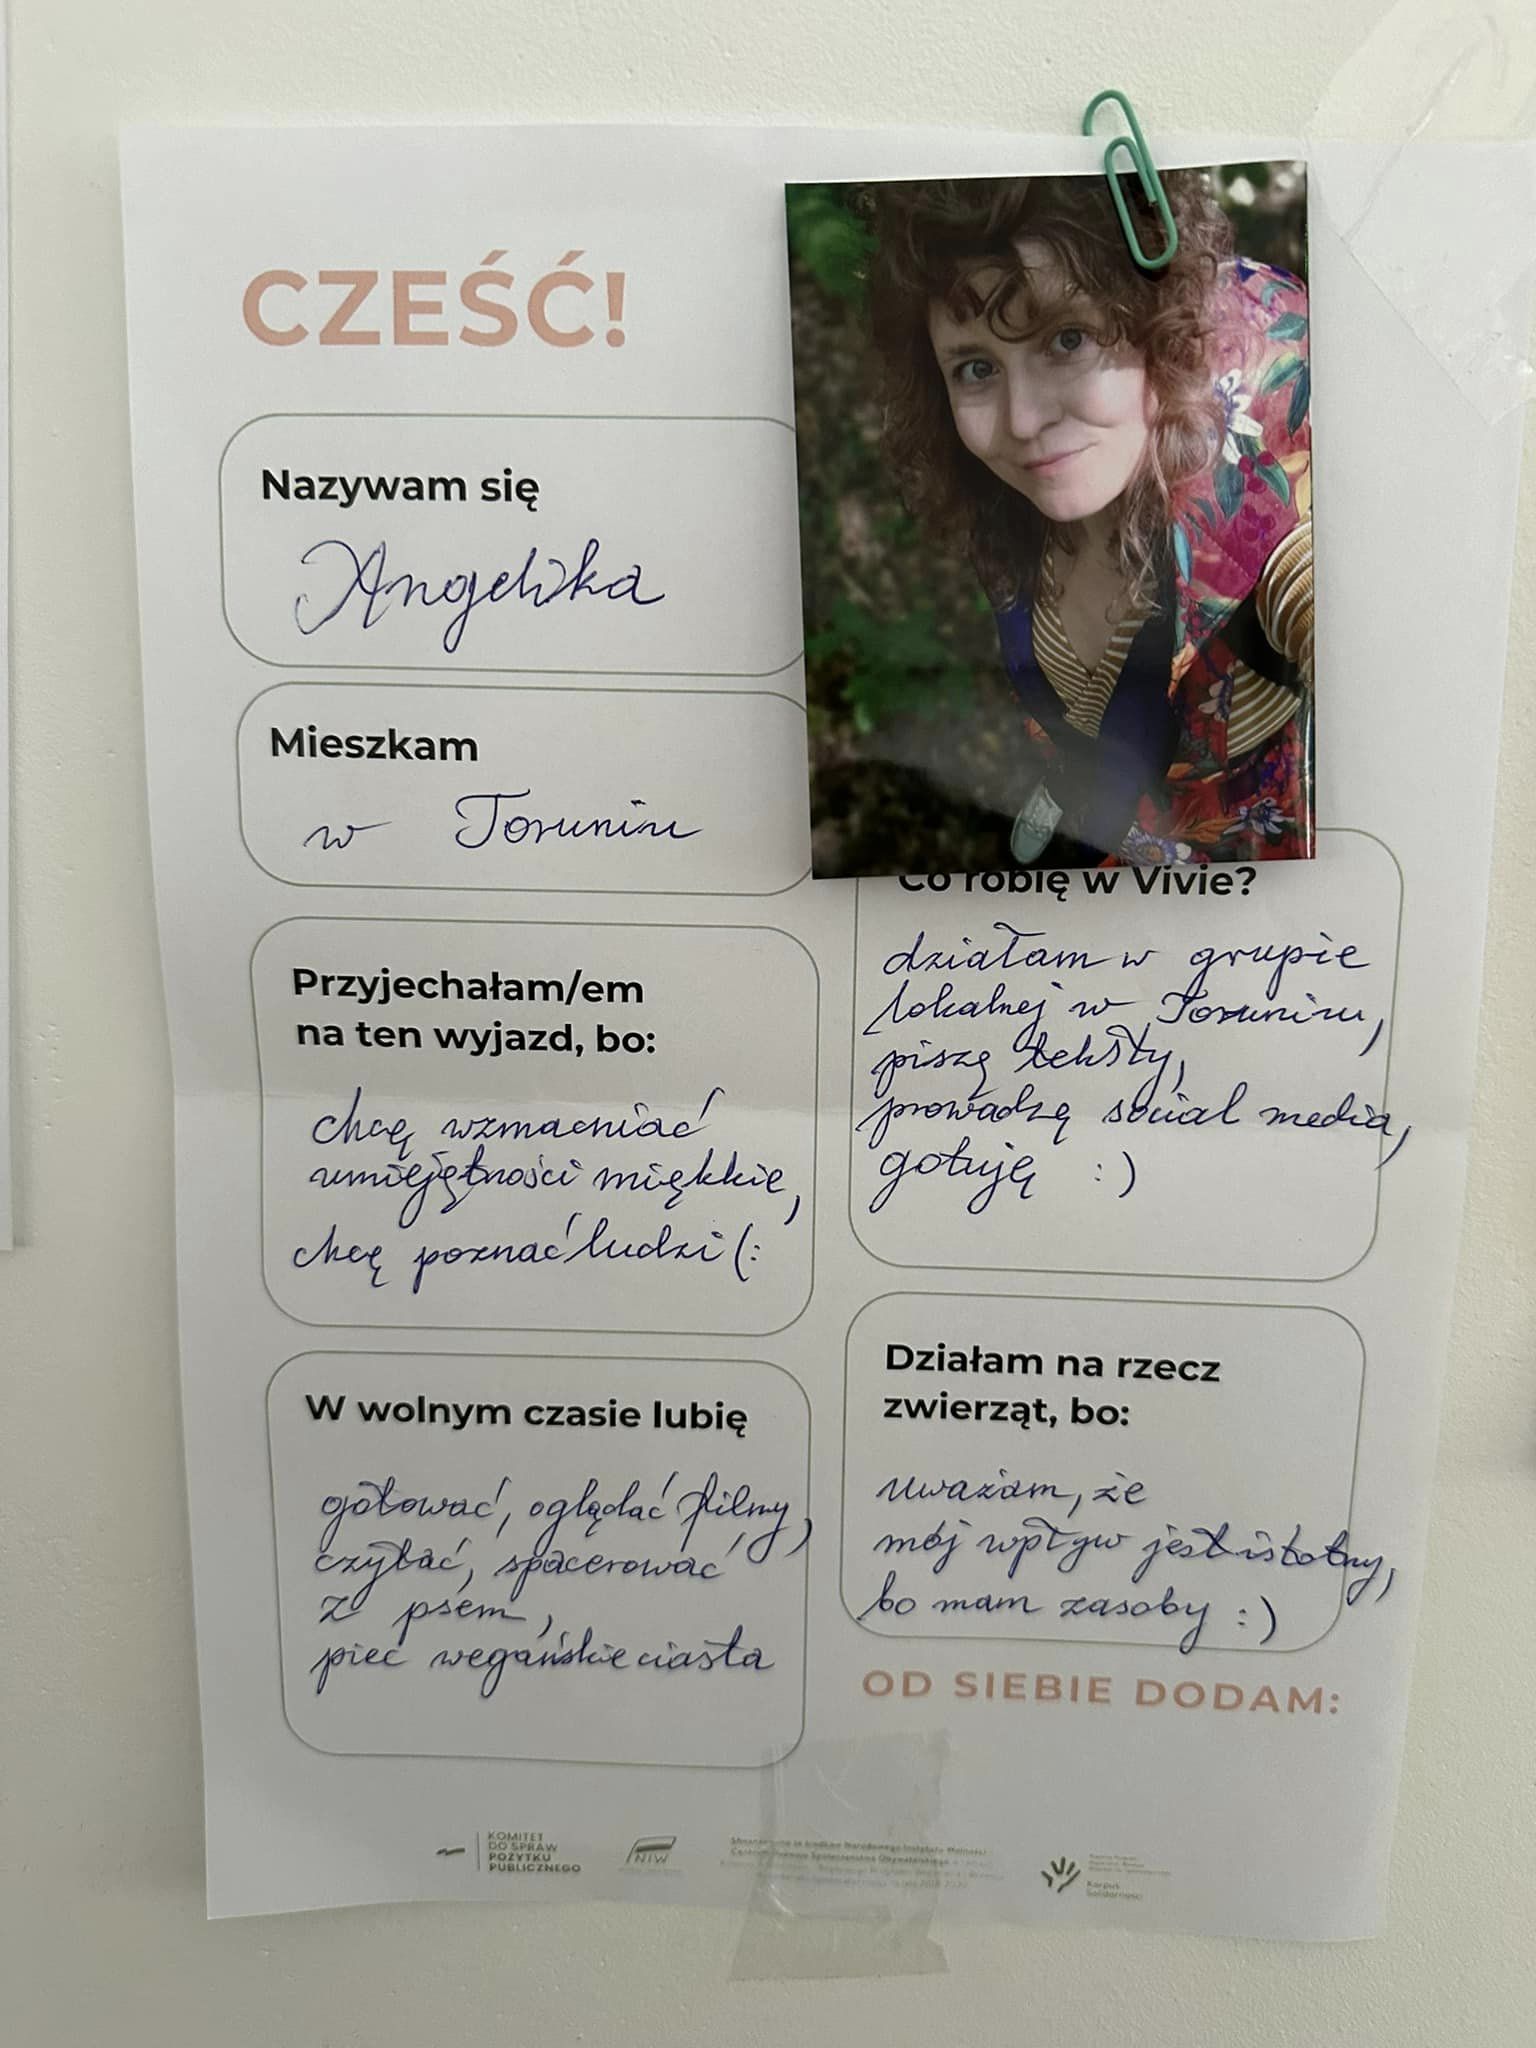 CZEŚĆ!
Nazywam się
Angelika
Mieszkam
w Toruniu
Przyjechałam/em
na ten wyjazd, bo:
chcę wzmacniać
umiejętności miękkie,
chcę poznać ludzi (:
W wolnym czasie lubię
gotować, oglądać filmy,
czytać, spacerować
z psem,
piec wegańskie ciasta
Co robię w Vivie?
działam w grupie
lokalnej w Toruniu,
piszę teksty,
prowadzę social media,
gotuję :)
Działam na rzecz
zwierząt, bo:
uważam, że
mój wpływ jest istotny,
bo mam zasoby :)
OD SIEBIE DODAM:
KOMITET
DO SPRAW
POŻYTKU
PUBLICZNEGO
NIW
Sfinansowano ze środków Narodowego Instytutu Wolności
Centrum Rozwoju Społeczeństwa Obywatelskiego
Korpus
Solidarności